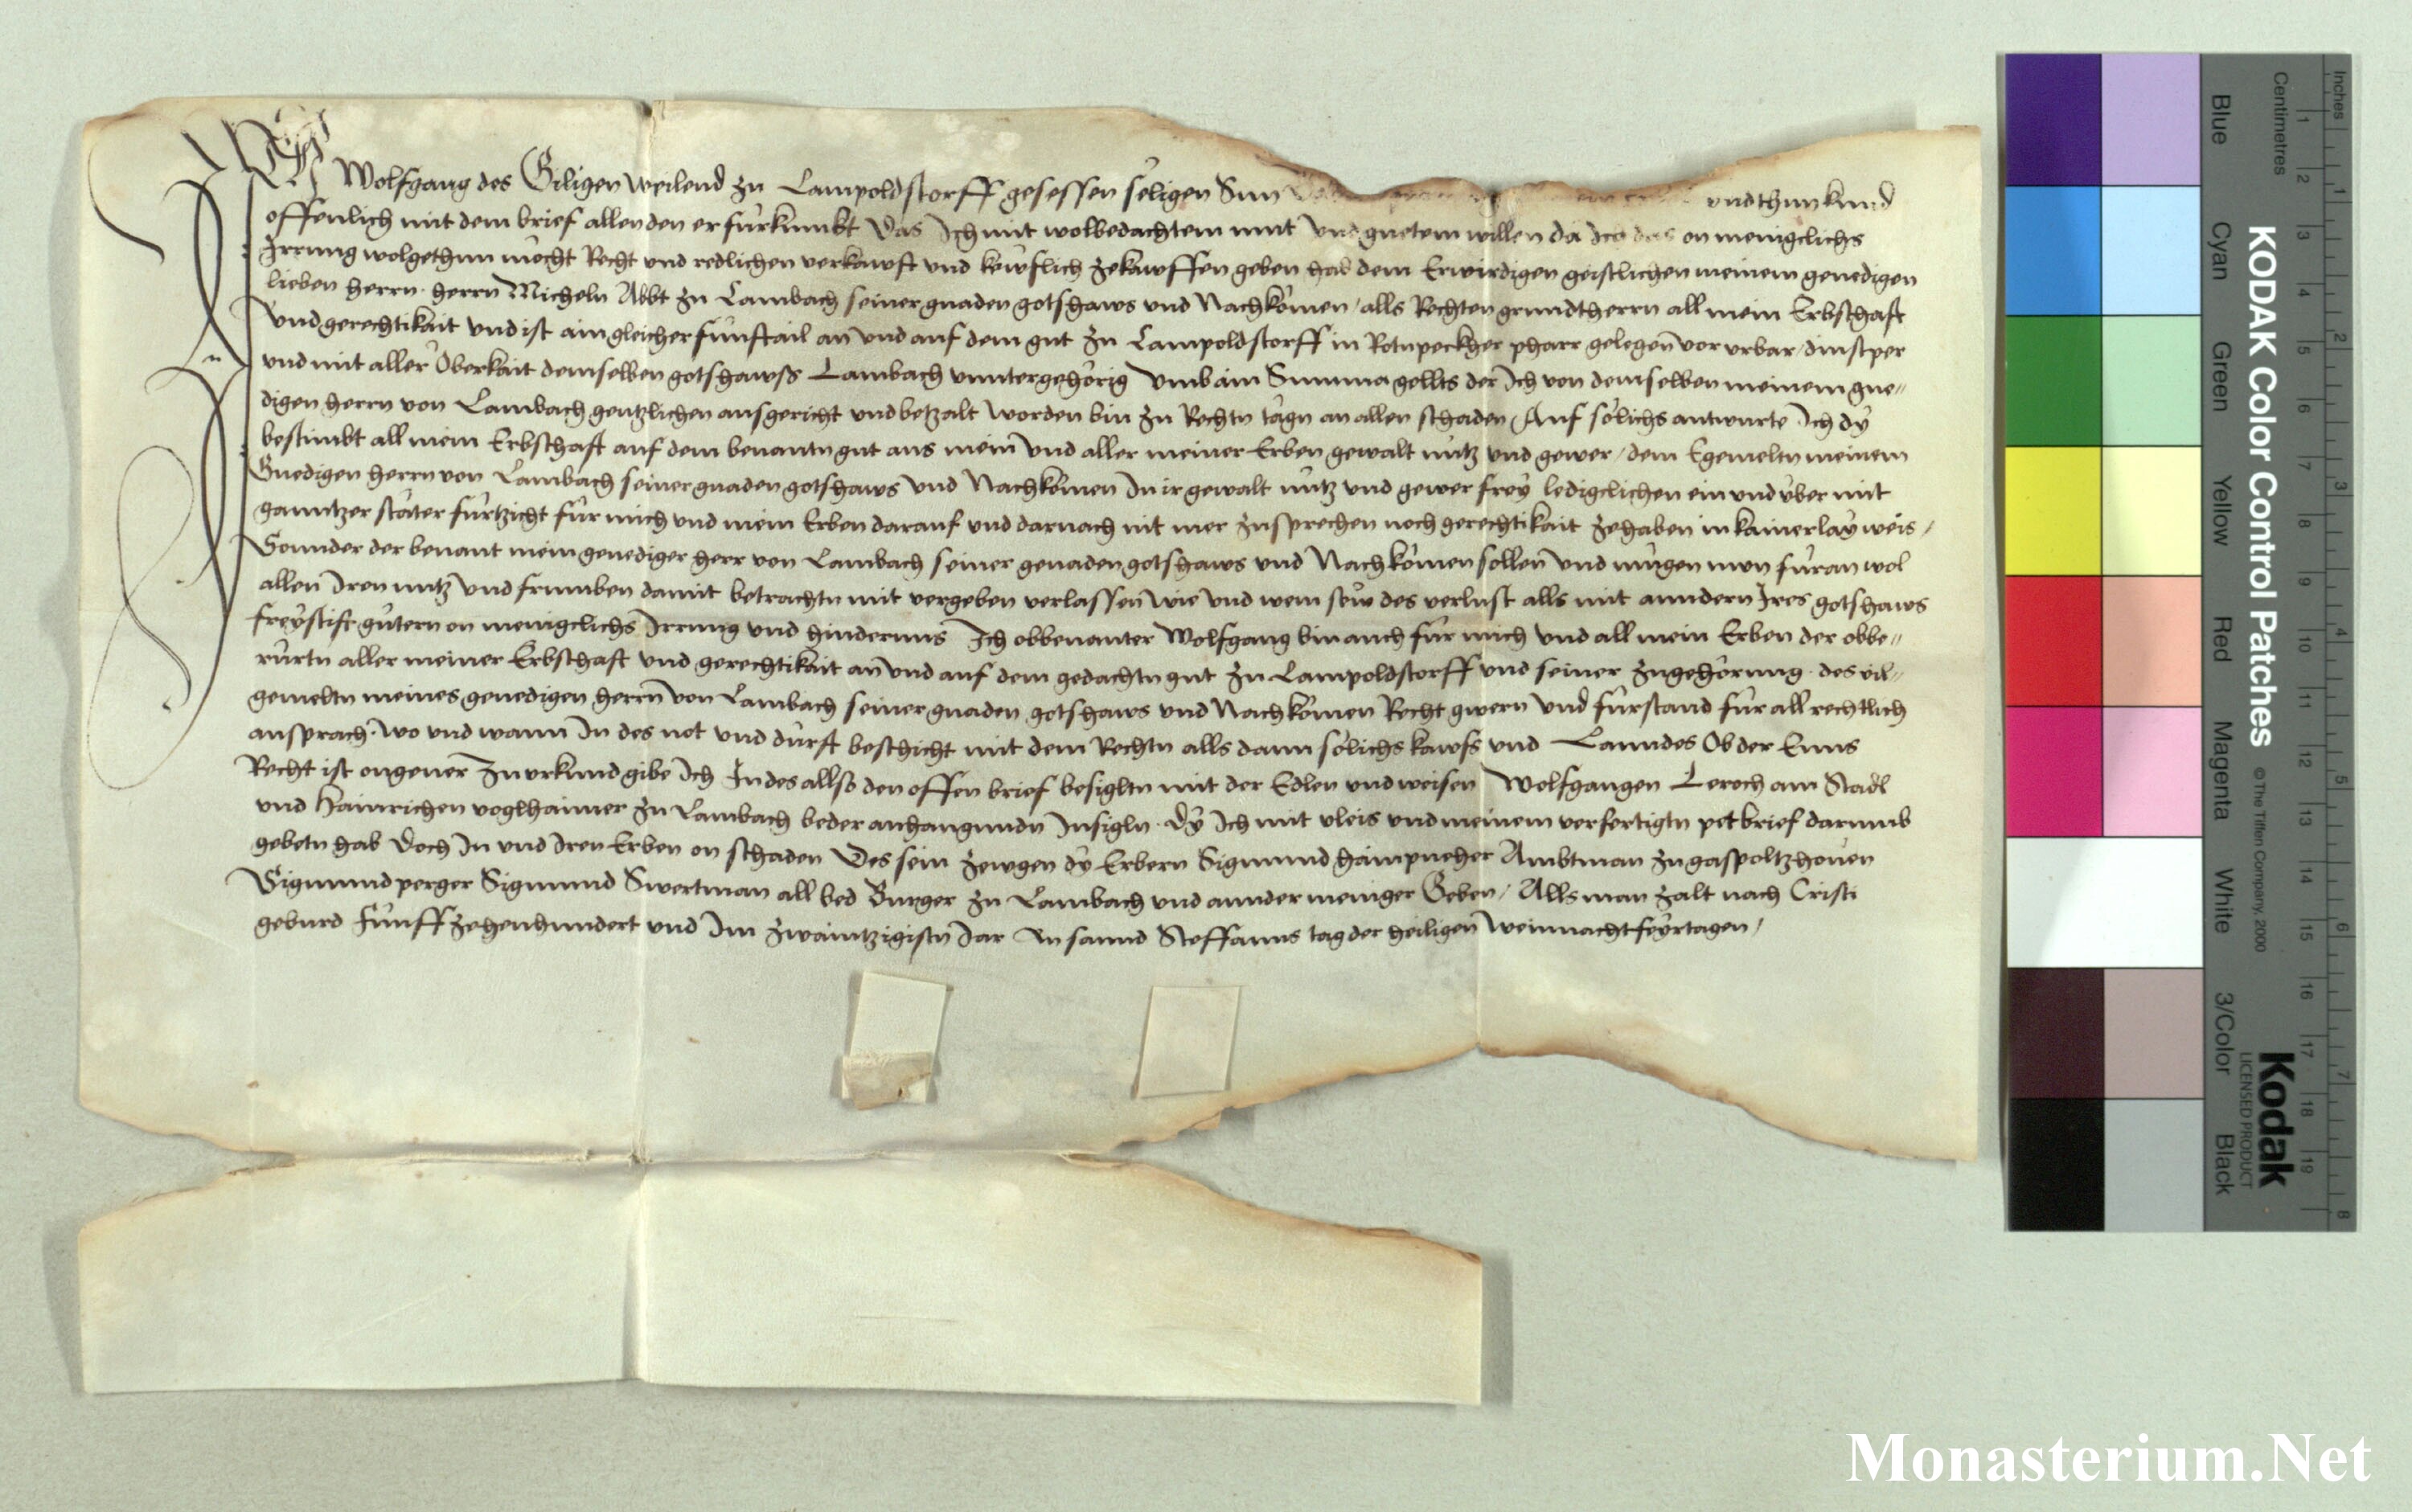 Ich Wolfgang des Giligen weilend zu Lampoldstorff gesessen seligen Sun und thun kund
offenlich mit dem brief allen den er fürkumbt Das Ich mit wolbedachtem mut und guetem willen da Ich das on menigclichs
Irrung wolgethun mocht Recht und redlichen verkawft und kewflich zekawffen geben hab dem Erwirdigen geistlichen meinem genedigen
lieben herrn herrn Micheln Abbt zu Lambach seiner gnaden gotshaws und Nachkömen / alls Rechten grundtherrn all mein Erbschaft
und gerechtikait und ist ain gleicher funftail an und auf dem gut zu Lampoldstorff in Rotnpeckher pharr gelegen vor urbar / dinstper
und mit aller Oberkait demselben gotshawss Lambach unntergehörig umb ain Summa gellts der Ich von demselben meinem gne=
digen herrn von Lambach gentzlichen ausgericht und betzalt worden bin zu Rechtn tägn an allen schaden Auf sölichs antwurte Ich dÿ
bestimbt all mein Erbschaft auf dem benantn gut aus mein und aller meiner Erben gewalt nutz und gewer / dem Egemeltn meinem
Gnedigen herrn von Lambach seiner gnaden gotshaws und Nachkömen In ir gewalt nutz und gewer freÿ ledigclichen ein und über mit
ganntzer stäter fürtzicht für mich und mein Erben darauf und darnach nit mer zusprechen noch gerechtikait zehaben in kainerlaÿ weis /
Sonnder der benant mein genediger herr von Lambach seiner genaden gotshaws und Nachkömen sollen und mügen nun füran wol
allen Iren nutz und frumben damit betrachtn mit vergeben verlassen wie und wem sew des verlust alls mit anndern Ires gotshaws
freÿstift gütern on menigclichs Irrung und hindernus Ich obbenanter Wolfgang bin auch für mich und all mein Erben der obbe=
rürtn aller meiner Erbschaft und gerechtikait an und auf dem gedachtn gut zu Lampoldstorff und seiner zugehörung des vil=
gemeltn meines genedigen herrn von Lambach seiner gnaden gotshaws und Nachkömen Recht gwern und fürstand für all rechtlich
ansprach wo und wann In des not und dürft beschicht mit dem Rechtn alls dann sölichs kawfs und Lanndes Ob der Enns
Recht ist ongener Zu urkund gibe Ich In des allso den offen brief besigltn mit der Edlen und weisen Wolfgangen Leroch am Stadl
und Hainrichen voglhaimer zu Lambach beder anhangundn Insigln Dÿ Ich mit vleis und meinem verfertigtn petbrief darumb
gebetn hab Doch In und Iren Erben on schaden Des sein zewgen dÿ Erbern Sigmund Ambtman zu gaspoltzhoven
Sigmund perger Sigmund Swertman all bed Burger zu Lambach und annder meniger Geben / Alls man zalt nach Cristi
geburd Fünffzehenhundert und Im zwaintzigistn Iar An sannd Steffanns tag der heiligen weinnacht feÿrtagen /
KODAK Color Control Patches
© The Tiffen Company, 2000
Kodak
LICENSED PRODUCT
Blue
Cyan
Green
Yellow
Red
Magenta
White
3/Color
Black
Inches
1 2 3 4 5 6 7 8
Centimetres
1 2 3 4 5 6 7 8 9 10 11 12 13 14 15 16 17 18 19
Monasterium.Net